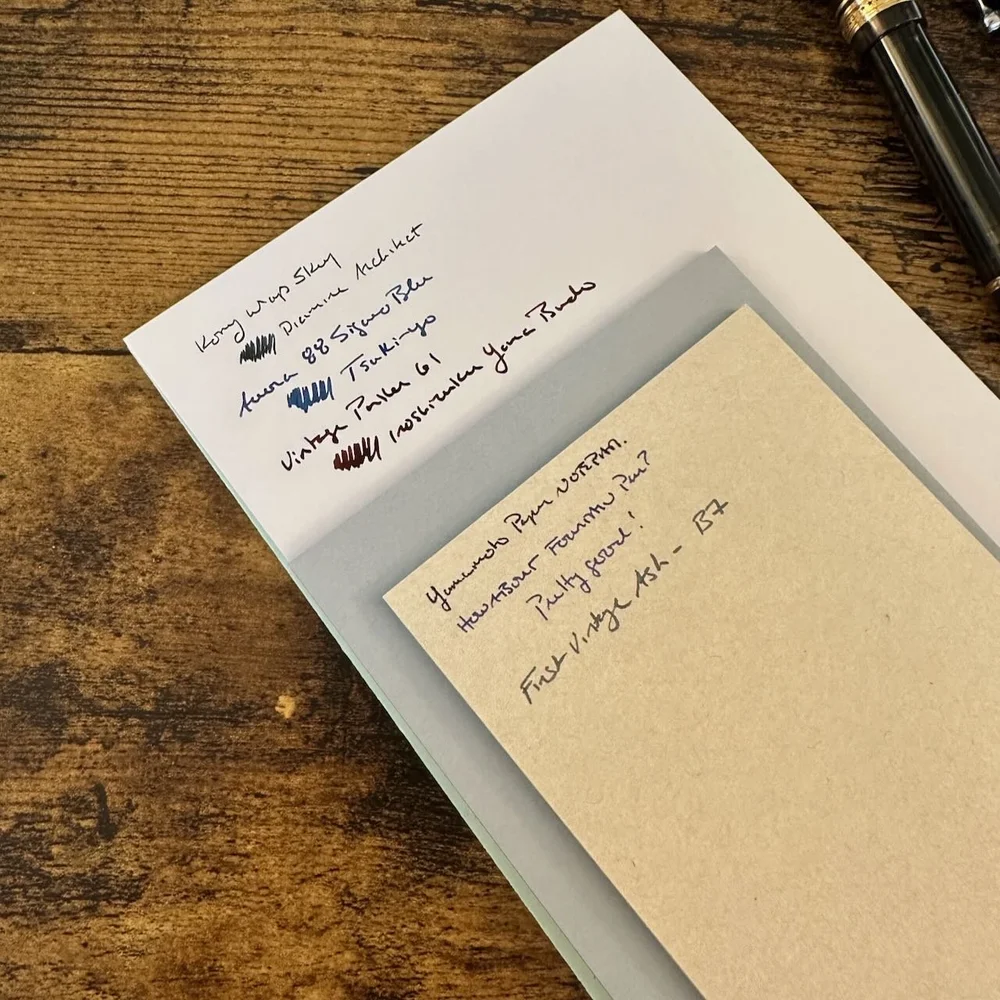 Kong Wrap Sky
Diamine Architect
Aurora 88 Sigaro Blu
Tsuki-yo
Vintage Parker 61
Iroshizuku Yama Budo
Yamamoto Paper NOTEPAD.
How ABOUT FOUNTAIN Pen?
Pretty good!
First Vintage Ash - B7